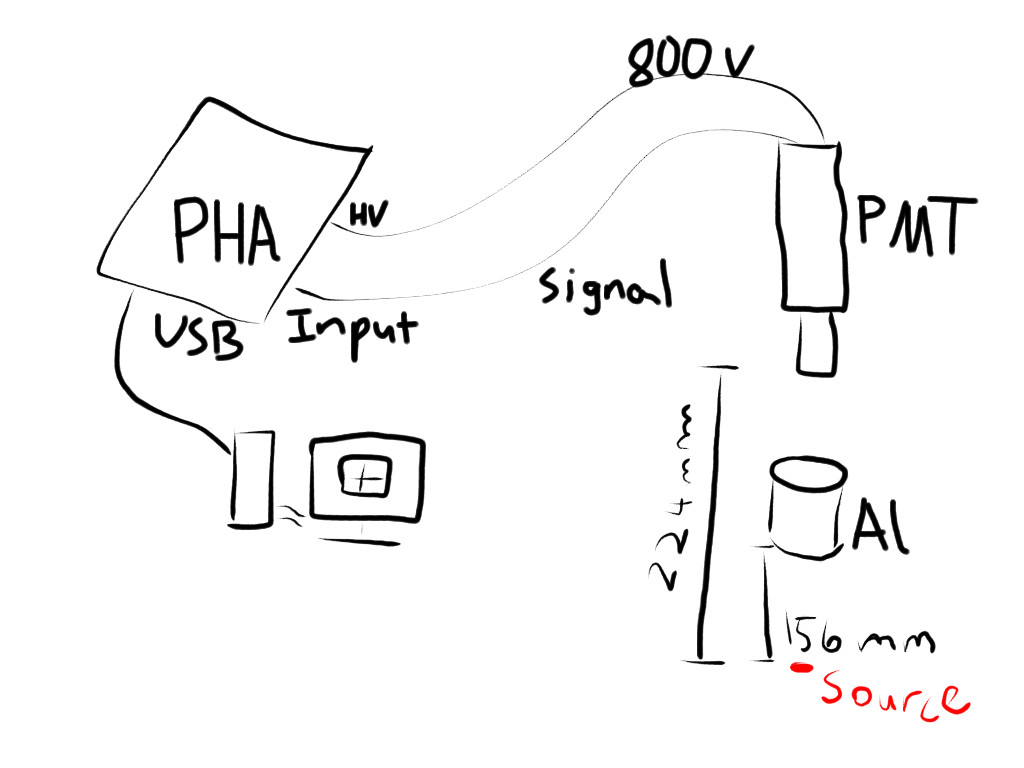 800 V
PHA
HV
PMT
Signal
USB
Input
224mm
Al
156 mm
Source